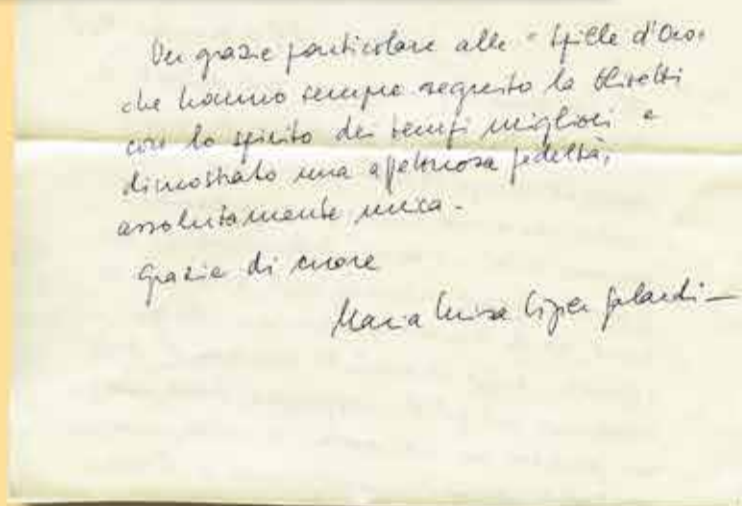 Un grazie particolare alle "Spille d'Oro"
che hanno sempre seguito la Olivetti
con lo spirito dei tempi migliori e
dimostrato una affettuosa fedeltà,
assolutamente unica.
Grazie di cuore
Maria Luisa Galardi